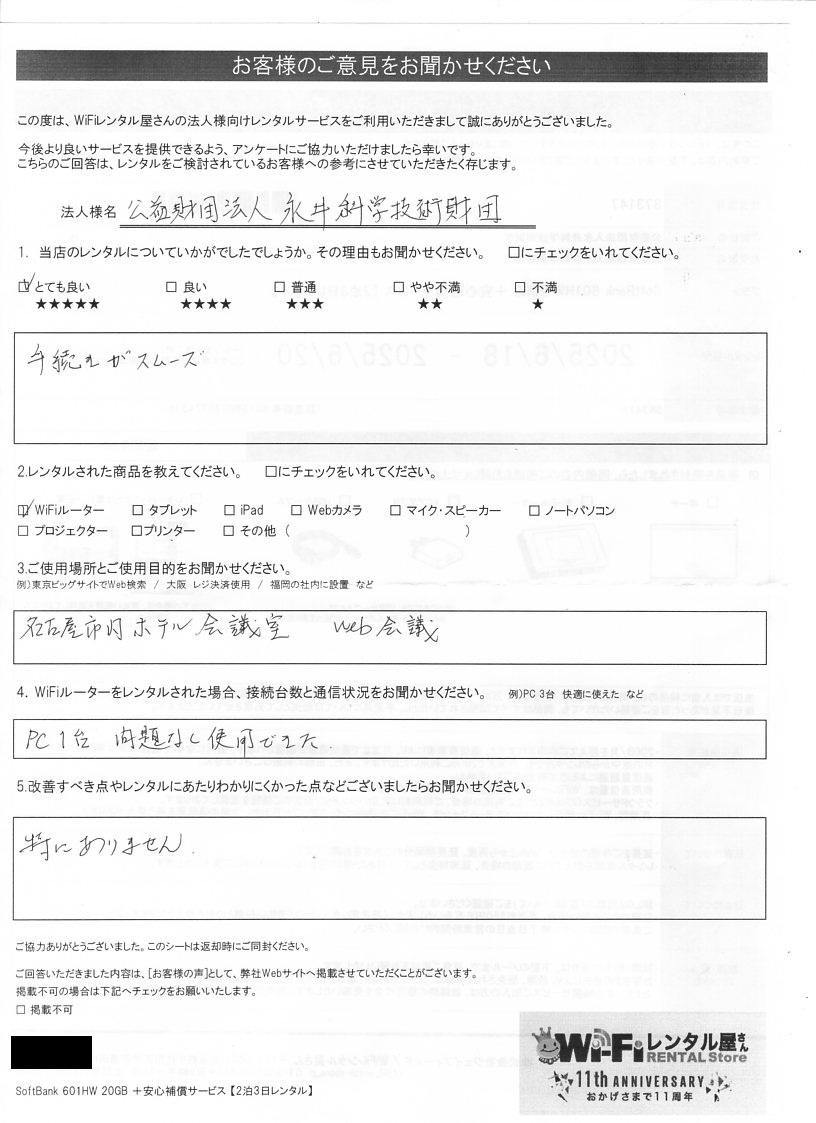 お客様のご意見をお聞かせください
この度は、WiFiレンタル屋さんの法人様向けレンタルサービスをご利用いただきまして誠にありがとうございました。
今後より良いサービスを提供できるよう、アンケートにご協力いただけましたら幸いです。
こちらのご回答は、レンタルをご検討されているお客様への参考にさせていただきたく存じます。
法人様名 公益財団法人 永井科学技術財団
1. 当店のレンタルについていかがでしたでしょうか。その理由もお聞かせください。 □にチェックをいれてください。
☑とても良い □ 良い □ 普通 □ やや不満 □ 不満
★★★★★ ★★★★ ★★★ ★★ ★
手続きがスムーズ
2.レンタルされた商品を教えてください。 □にチェックをいれてください。
☑ WiFiルーター □ タブレット □ iPad □ Webカメラ □ マイク・スピーカー □ ノートパソコン
□ プロジェクター □プリンター □ その他 ( )
3.ご使用場所とご使用目的をお聞かせください。
例)東京ビッグサイトでWeb検索 / 大阪 レジ決済使用 / 福岡の社内に設置 など
名古屋市内ホテル会議室 Web会議
4. WiFiルーターをレンタルされた場合、接続台数と通信状況をお聞かせください。 例)PC 3台 快適に使えた など
PC 1台 問題なし使用できた
5.改善すべき点やレンタルにあたりわかりにくかった点などございましたらお聞かせください。
特にありません.
ご協力ありがとうございました。このシートは返却時にご同封ください。
ご回答いただきました内容は、[お客様の声]として、弊社Webサイトへ掲載させていただくことがございます。
掲載不可の場合は下記へチェックをお願いいたします。
□ 掲載不可
WiFiレンタル屋さん
RENTAL Store
11th ANNIVERSARY
おかげさまで11周年
SoftBank 601HW 20GB +安心補償サービス【2泊3日レンタル】